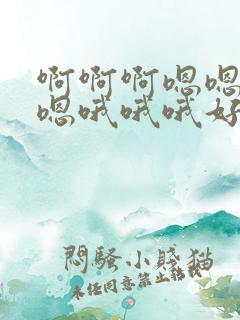 啊啊啊嗯嗯
嗯哦哦哦好
悶騷小賤猫
未任同意禁止転載